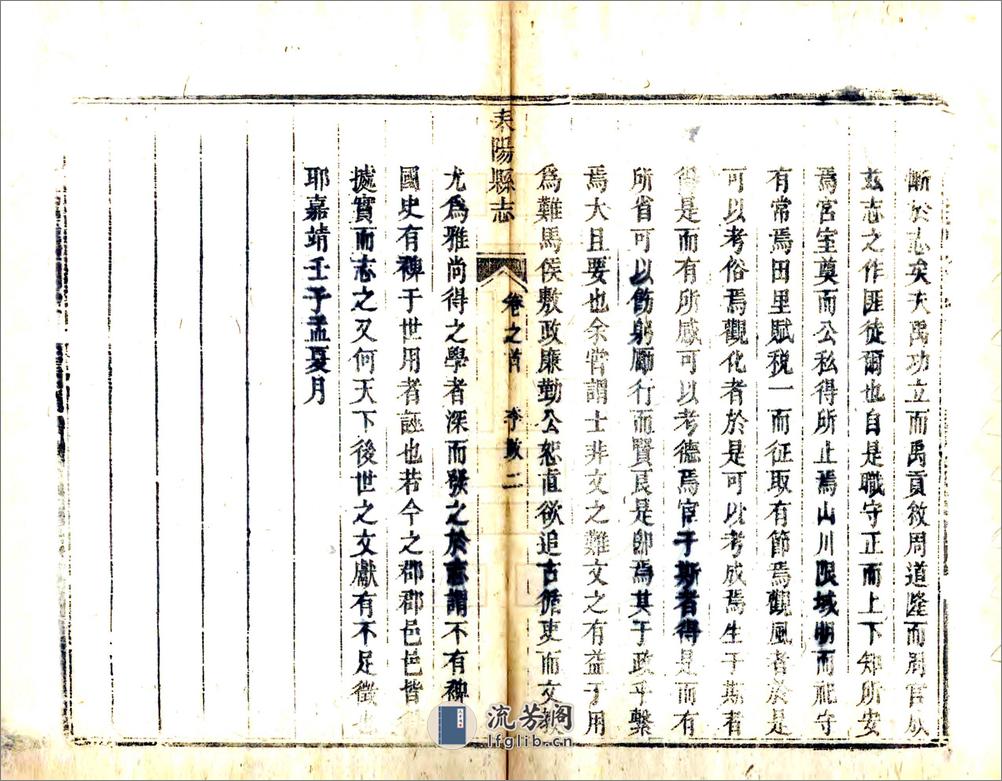 慚於志矣大禹功立而禹貢敘周道隆而周官成
玆志之作匪徒爾也自是職守正而上下知所安
焉宮室奠而公私得所止焉山川限域明而祀守
有常焉田里賦稅一而征取有節焉觀風者於是
可以考俗焉觀化者於是可以考成焉生于斯者
得是而有所感可以考德焉官于斯者得是而有
所省可以飭躬勵行而賢良是卽焉其于政乎繫
焉大且要也余嘗謂士非文之難文之有益于用
為難馬侯敷政廉勤公恕直欲追古循吏而文
耒陽縣志
卷之首
李敘二
尤為雅尚得之學者深而發之於志謂不有裨
國史有裨于世用者誣也若今之郡郡邑邑皆
據實而志之又何天下後世之文獻有不足徵也
耶嘉靖壬子孟夏月
流芳閣
lfglib.cn